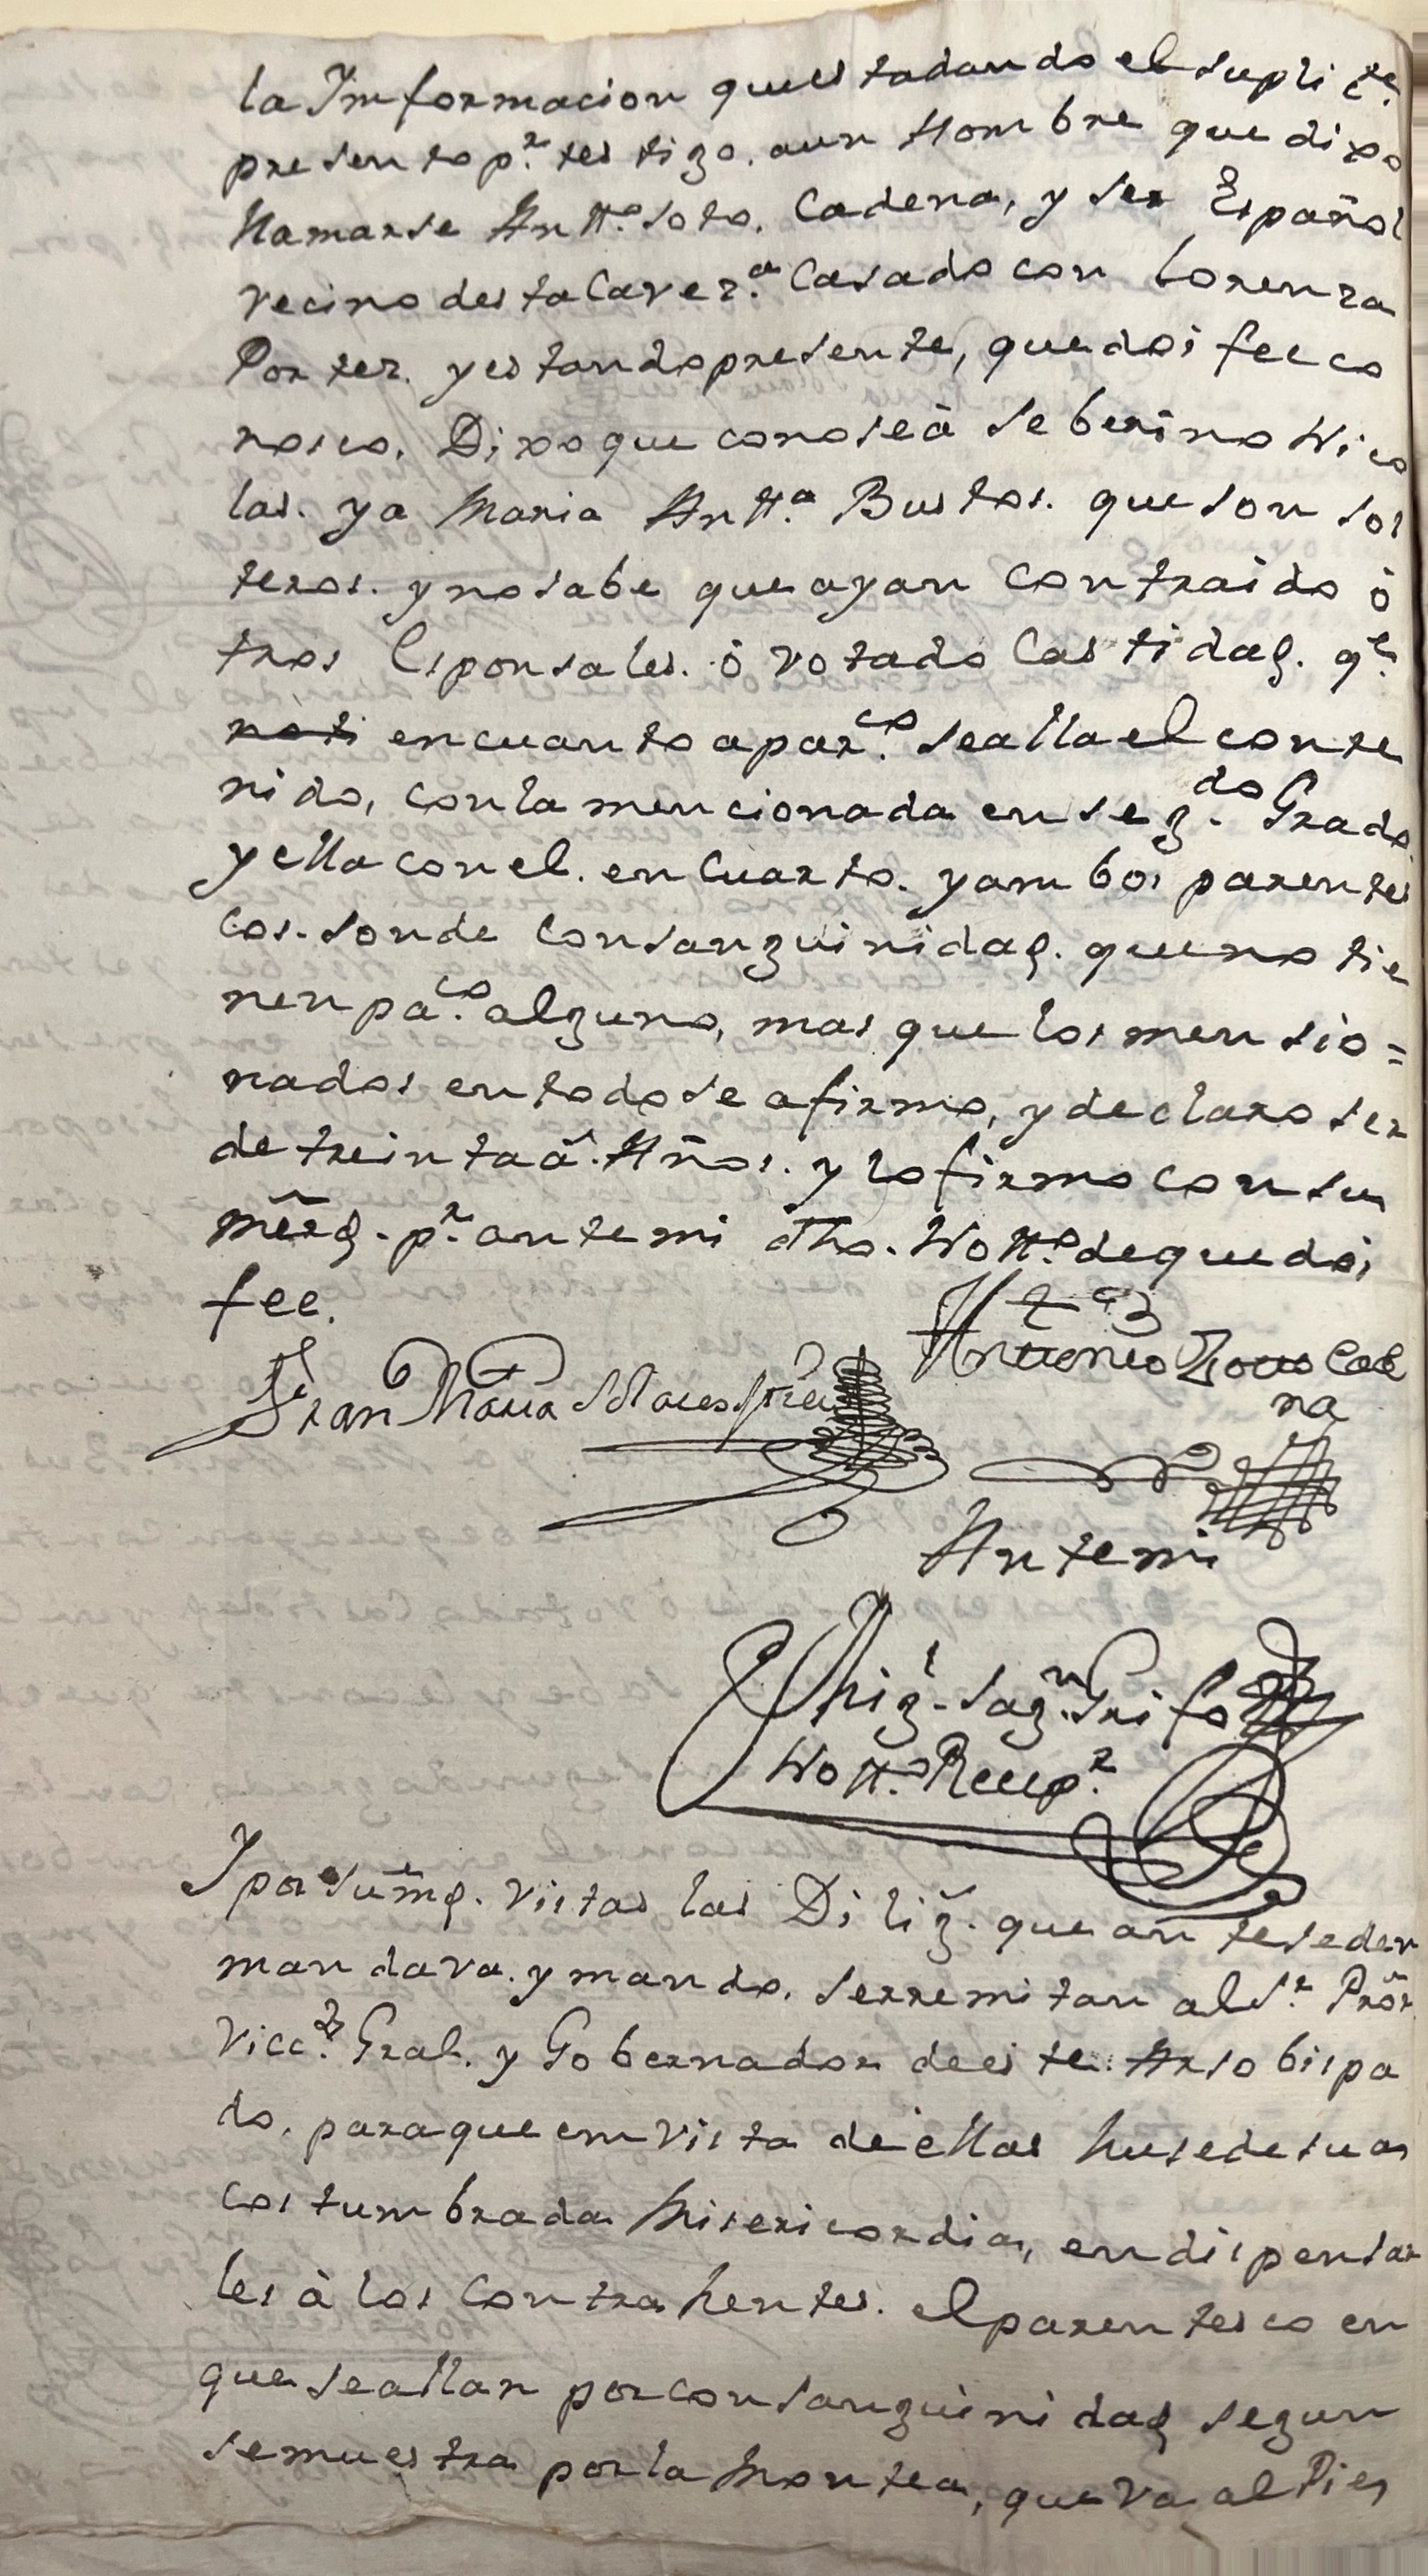 la Imformacion questadando el supli.te
presento p.r testigo. aun Hombre que dixo
llamarse Antt.o Soto. Cadena, y ser Español
vecino desta Cavez.a Casado con Lorenza
Porter. y estando presente, que doi fee co
nosco. Dixo que conose à Seberino Nico
las. ya Maria Antt.a Bustos. que son sol
teros. y no sabe que ayan contraido ò
tros Esponsales. ò votado Castidad. q.e
noti en cuanto a par.co se alla el conte
nido, con la mencionada en seg.do Grado
y ella con el. en Cuarto. y ambos parentes
cos. son de consanguinidad. que no tie
nen pa.co alguno, mas que los mensio=
nados en todo se afirmo, y declaro ser
de treinta a. Años. y lo firmo con su
merd. p.r ante mi dho. Nott.o de que doi
fee.
Fran Maria Maestre
Antonio Soto Cade
na
Ante mi
Mig.l Sag.n Grifo
Nott.o Recep.r
Y por su md. vistas las Dilig. que anteseden
mandava. y mando. se rremitan al S.r Pror
Vicc.o Gral. y Gobernador de este Arsobispa
do. para que em vista de ellas huse de su a
costumbrada Misericordia, en dispensar
les à los contrahentes. el parentesco en
que se allan por consanguinidad segun
se muestra por la Montea, que va al Pie